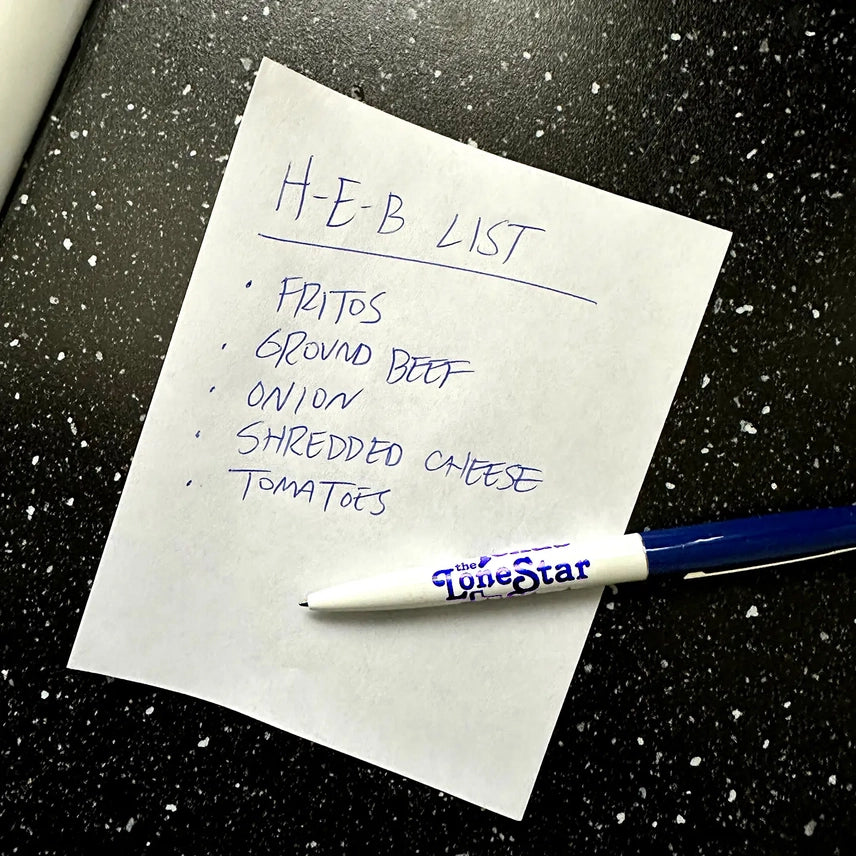 H-E-B LIST
• FRITOS
• GROUND BEEF
• ONION
• SHREDDED CHEESE
• TOMATOES
the
LoneStar